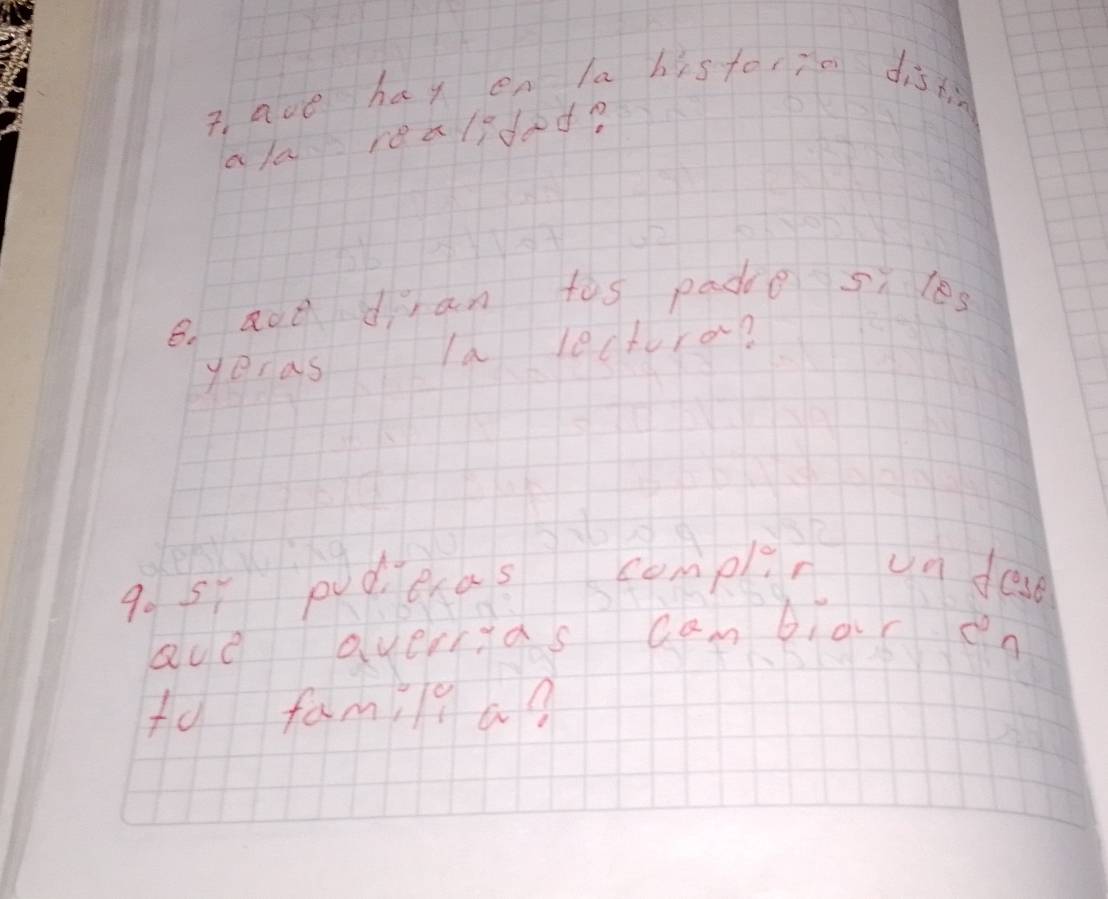 7. que hay en la historia distin
a la realidad?
8. que diran tus padre si les
yeras la lectura?
9. si pudieras complir un dese
que querrias cambiar en
tu familia?